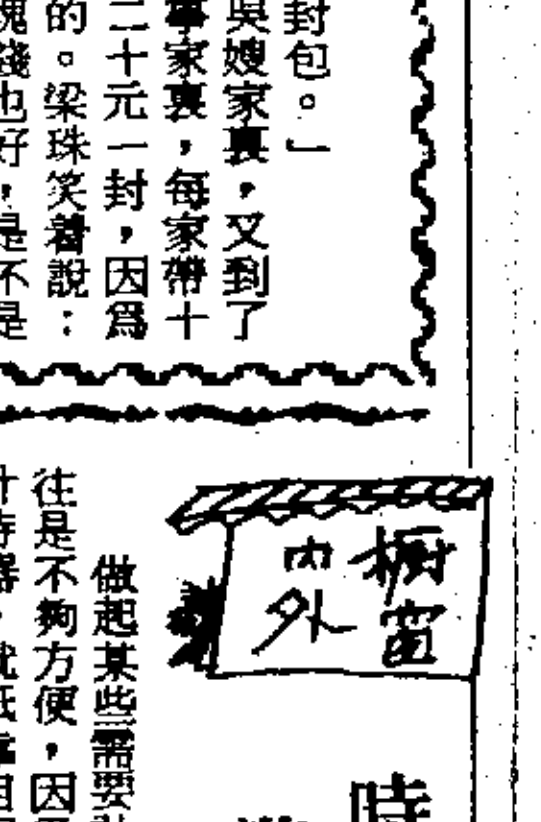 封包。」
吳嫂家裏，又到了
事家裏，每家帶十
二十元一封，因爲
的。梁珠笑着說：
塊錢也好，是不是
櫥窗
內外
時
做起某些需要
往是不夠方便，因